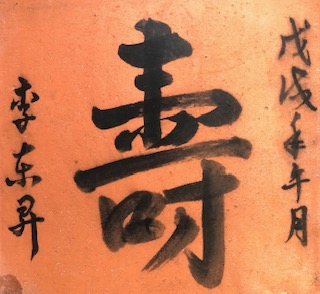 戊戌年午月
壽
李东昇